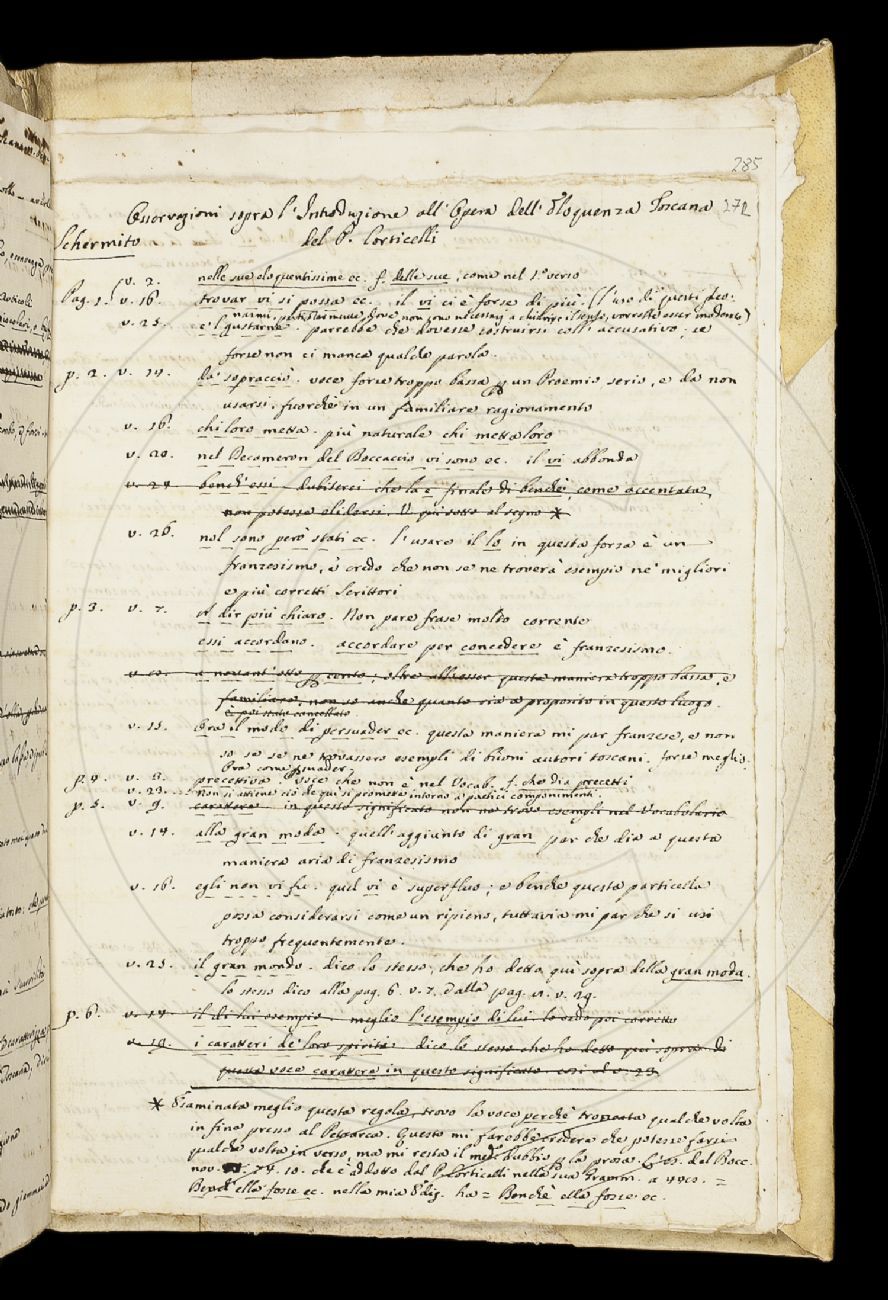 285
Osservazioni sopra l'Introduzione all'Opera dell'Eloquenza Toscana 272
Schermito del P. Corticelli
Pag. 1. v. 2. nelle sue eloquentissime ec. f. delle sue, come nel 1.º verso
v. 16. trovar vi si possa ec. il vi ci è forse di più. (l'uso di questi pleo-
nasmi, particolarmente dove non sono necessarj a chiarire il senso, vorrebbe esser moderato)
v. 25. e'l gustarne parebbe che dovesse costruirsi coll'accusativo, se
forse non ci manca qualche parola.
p. 2. v. 14. da sopracciò. voce forse troppo bassa per un Proemio serio, e da non
usarsi, fuorchè in un familiare ragionamento
v. 16. chi loro metta. più naturale chi metta loro
v. 20. nel Decameron del Boccaccio vi sono ec. il vi abbonda
v. 24 bench'essi dubiterei che la e finale di benchè, come accentata,
non potesse elidersi. V. qui sotto al segno *
v. 26. nol sono però stati ec. l'usare il lo in questa forza è un
franzesismo, e credo che non se ne troverà esempio ne' migliori
e più corretti Scrittori
p. 3. v. 7. A dir più chiaro. Non pare frase molto corrente
essi accordano. accordare per concedere è franzesismo.
a novant'otto per cento; oltre all'esser questa maniera troppo bassa, e
familiare, non so anche quanto sia a proposito in questo luogo.
è poi stato cancellato
v. 15. Ora il modo di persuader ec. questa maniera mi par franzese, e non
so se se ne trovassero esempli di buoni autori toscani. forse meglio
Ora come persuader,
p. 4. v. 8. precettiva voce che non è nel Vocab. f. che dia precetti
v. 23. Non si attiene ciò che qui si promette intorno a' poetici componimenti.
p. 5. v. 9. carattere in questo significato non ne trovo esempli nel Vocabolario
v. 14. alla gran moda. quell'aggiunto di gran par che dia a questa
maniera aria di franzesismo
v. 16. egli non vi fu. quel vi è superfluo; e benchè questa particella
possa considerarsi come un ripieno, tuttavia mi par che si usi
troppo frequentemente.
v. 25. il gran mondo. dico lo stesso, che ho detto qui sopra della gran moda.
lo stesso dico alla pag. 6. v. 7. dalla pag. v. 29.
p. 6. v. 14 il di lui esempio. meglio l'esempio di lui lo credo più corretto
v. 19. i caratteri de' loro spiriti dico lo stesso che ho detto qui sopra di
questa voce carattere in questo significato. così al v. 29
* Esaminata meglio questa regola, trovo la voce perchè troncata qualche volta
in fine presso al Petrarca. Questo mi farebbe credere che potesse farsi
qualche volta in verso, ma mi resta il med.º dubbio per la prosa. L'es. del Bocc.
nov. 74. 10. che è addotto dal P. Corticelli nella sua Gramm. a 440. =
Bench'ella fosse ec. nella mia Ediz. ha = Benchè ella fosse ec.